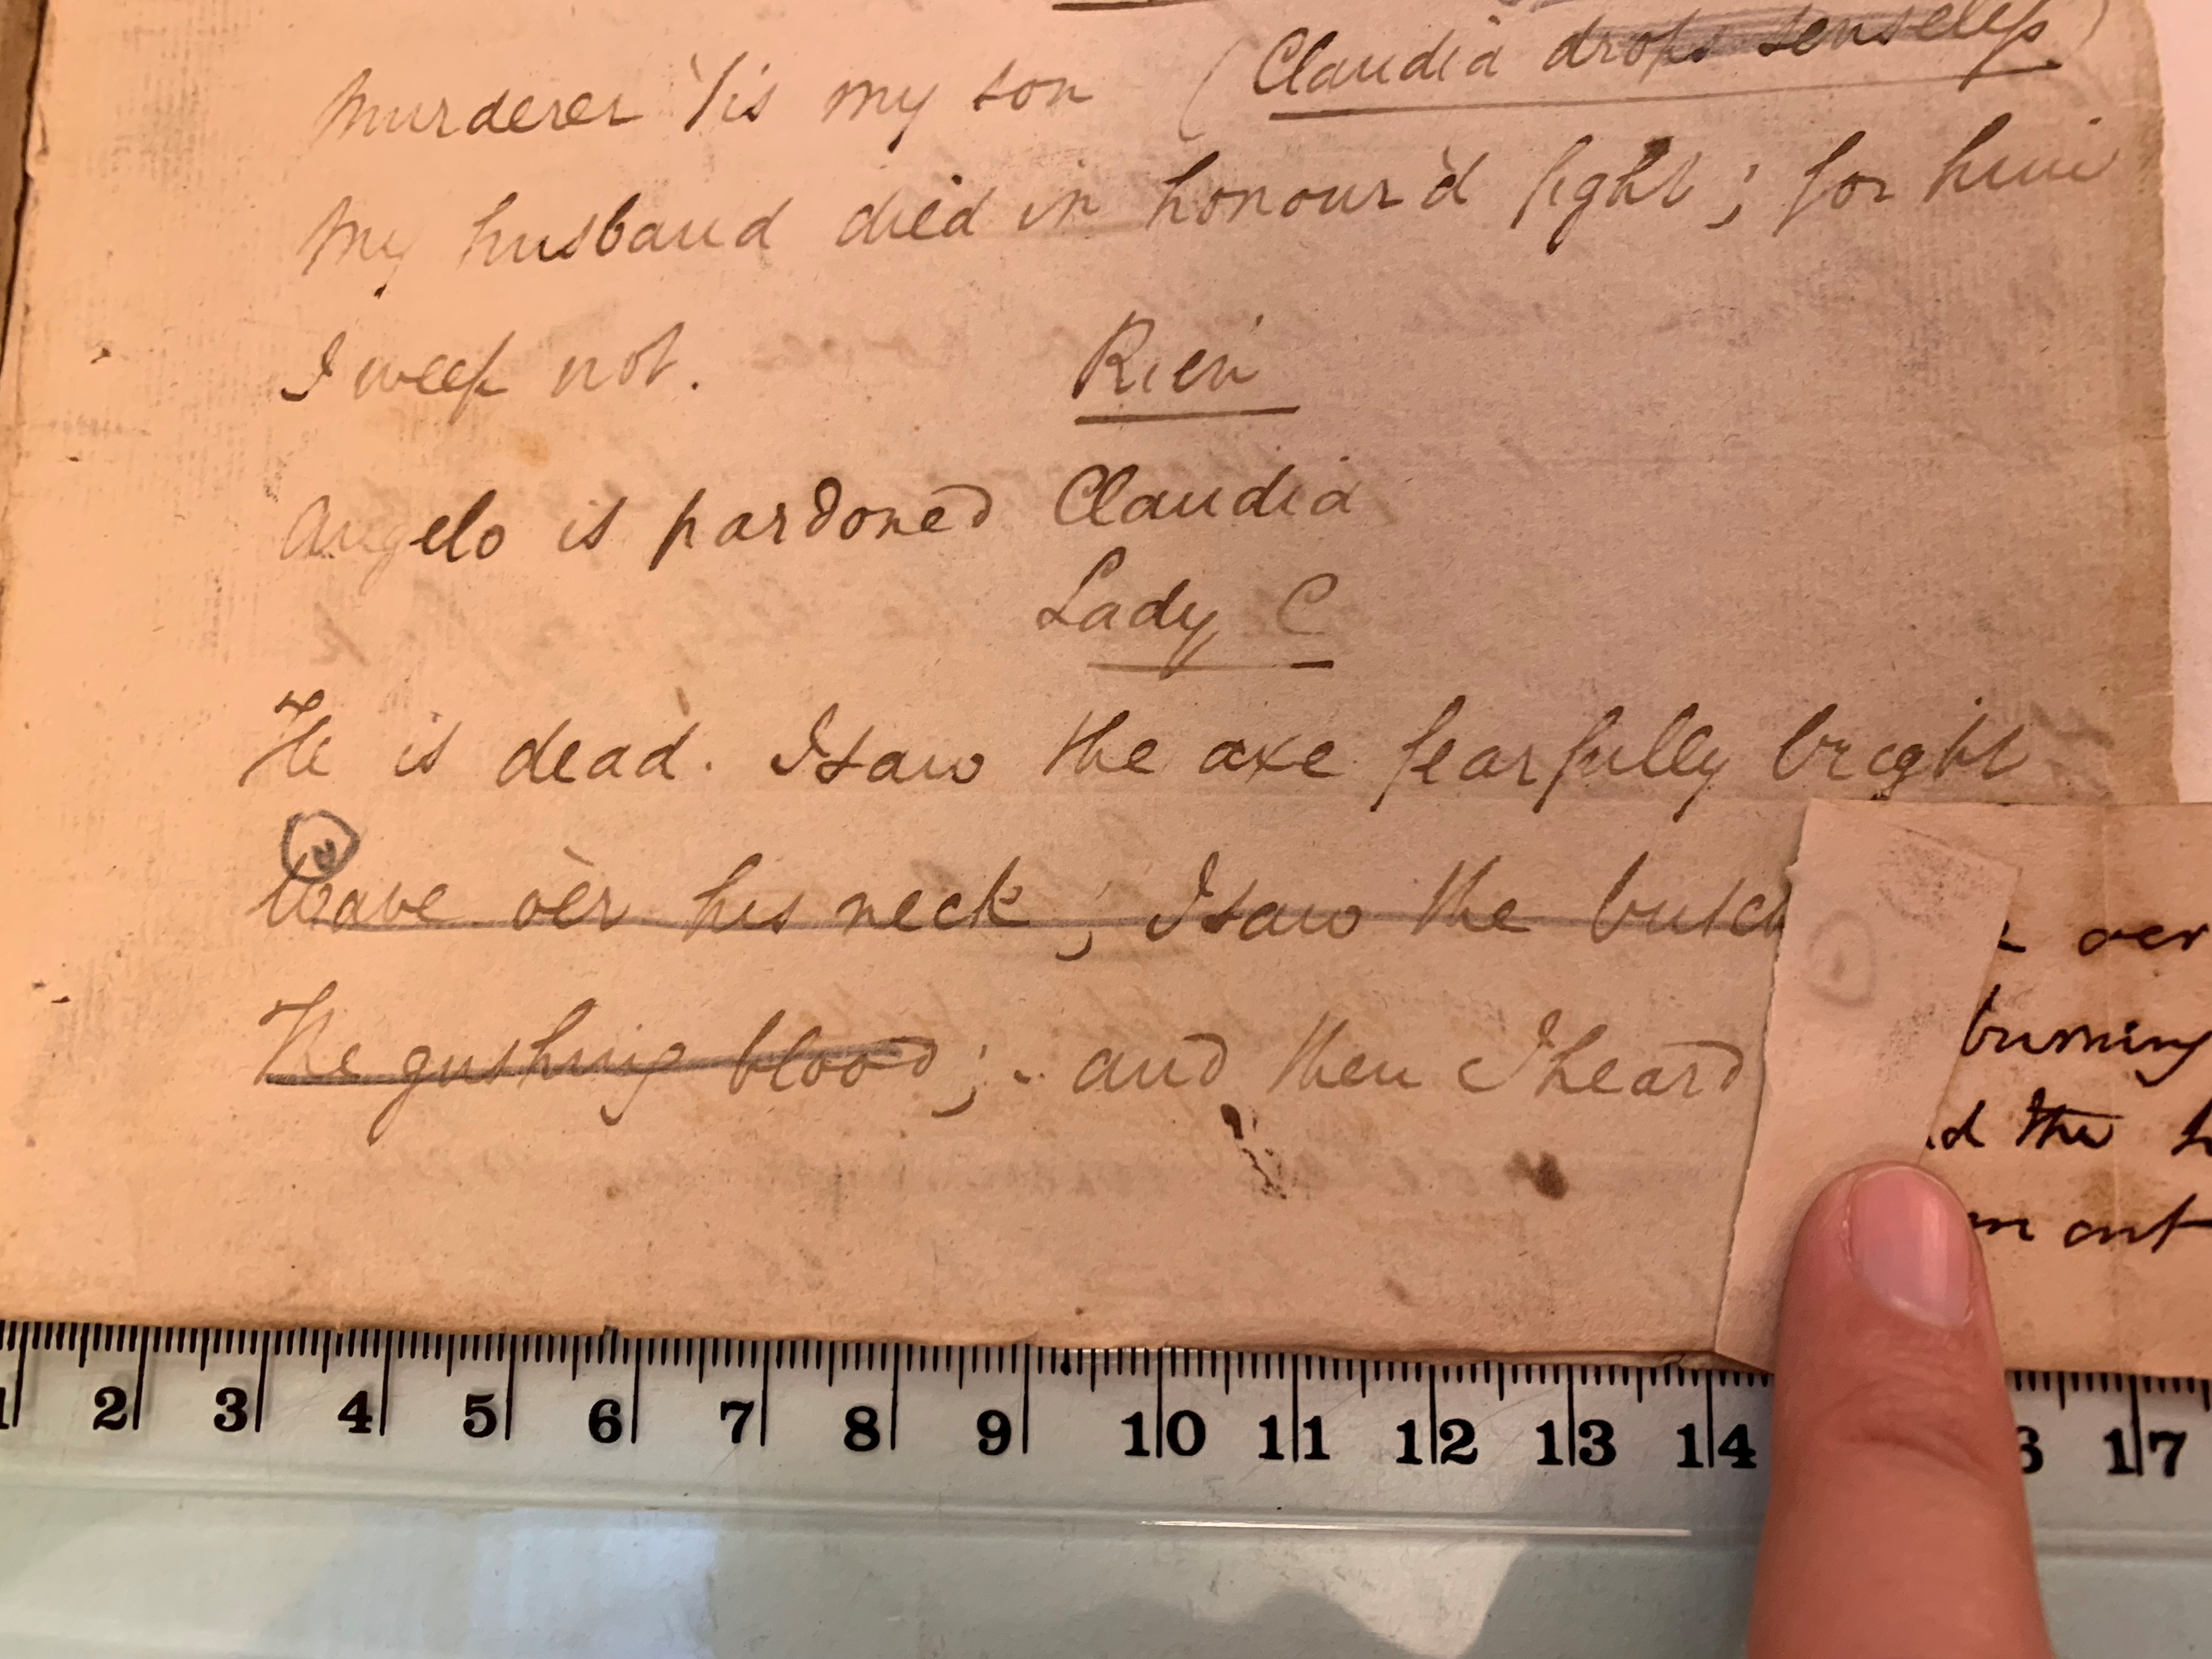 murderer 'Tis my son (Claudia drops senseless)
My husband died in honour'd fight; for him
I weep not. Rien
Angelo is pardoned Claudia
Lady C
He is dead. I saw the axe fearfully bright
Wave o'er his neck; I saw the butch
The gushing blood; and then I heard
oer
burning
the
out
1 2 3 4 5 6 7 8 9 10 11 12 13 14 17